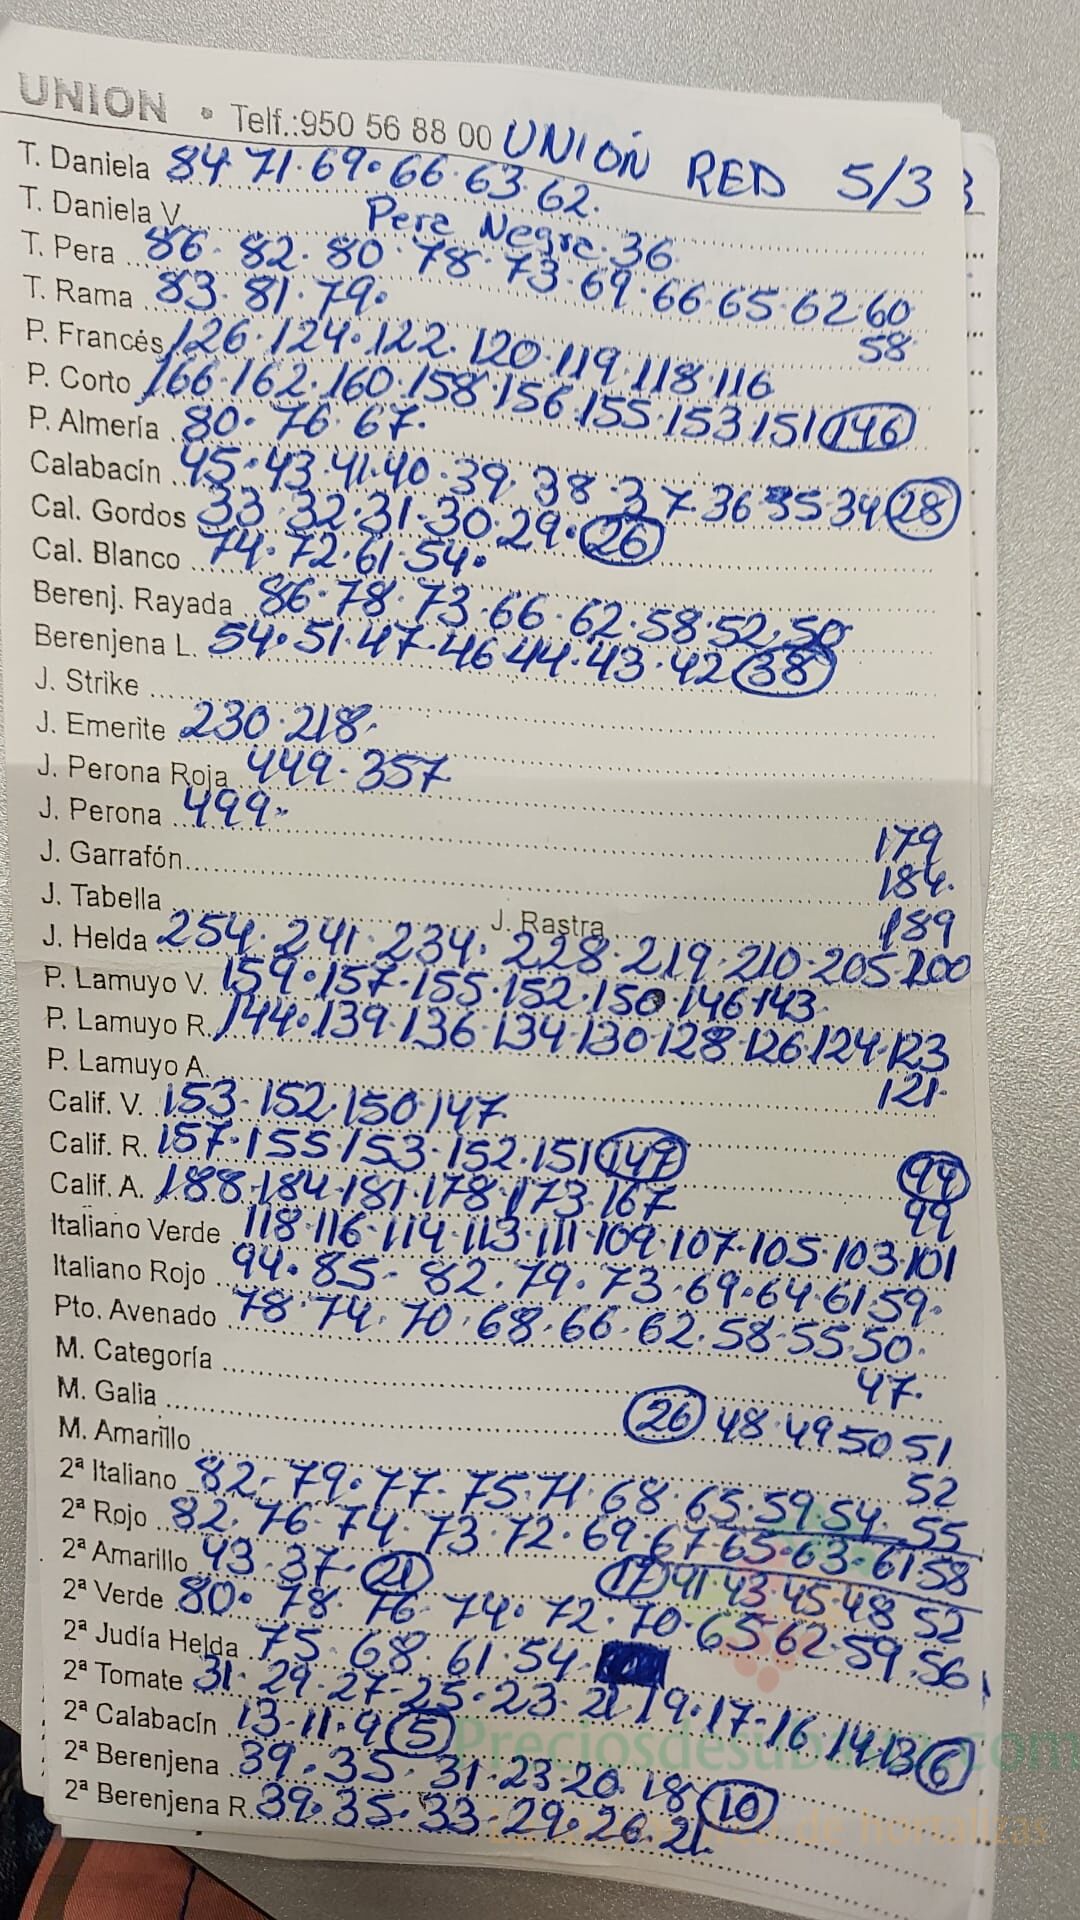 UNION • Telf.:950 56 88 00 UNIÓN RED 5/3
T. Daniela 84·71·69·66·63·62·
T. Daniela V. Pera Negra·36
T. Pera 86·82·80·78·73·69·66·65·62·60
58
T. Rama 83·81·79·
P. Francés 126·124·122·120·119·118·116
P. Corto 166·162·160·158·156·155·153·151 146
P. Almería 80·76·67·
Calabacín 45·43·41·40·39·38·37 36 35 34 28
Cal. Gordos 33·32·31·30·29·26
Cal. Blanco 74·72·61·54·
Berenj. Rayada 86·78·73·66·62·58·52·50
Berenjena L. 54·51·47·46·44·43·42 38
J. Strike
J. Emerite 230·218·
J. Perona Roja 449·357
J. Perona 499·
179
J. Garrafón 184·
J. Tabella J. Rastra 189
J. Helda 254·241·234·228·219·210·205·200
P. Lamuyo V. 159·157·155·152·150·146·143
P. Lamuyo R. 144·139·136·134·130·128·126·124·123
121·
P. Lamuyo A.
Calif. V. 153·152·150·147
Calif. R. 157·155·153·152·151 147 94
99
Calif. A. 188·184·181·178·173·167
Italiano Verde 118·116·114·113·111·109·107·105·103·101
Italiano Rojo 94·85·82·79·73·69·64·61 59·
Pto. Avenado 78·74·70·68·66·62·58·55·50·
47·
M. Categoría
M. Galia 26 48·49 50 51
52
M. Amarillo
2ª Italiano 82·79·77·75·71·68·65·59·54· 55
2ª Rojo 82·76·74·73·72·69·67·65·63·61·58
2ª Amarillo 43·37·21 17 41 43·45·48 52
2ª Verde 80·78·76·74·72·70·65 62·59·56
2ª Judía Helda 75·68·61·54·
2ª Tomate 31·29·27·25·23·21 19·17·16 14 13 6
2ª Calabacín 13·11·9 5
2ª Berenjena 39·35·31·23·20·18 10
2ª Berenjena R. 39·35·33·29·26·21
Preciosdesubasta.com
de hortalizas